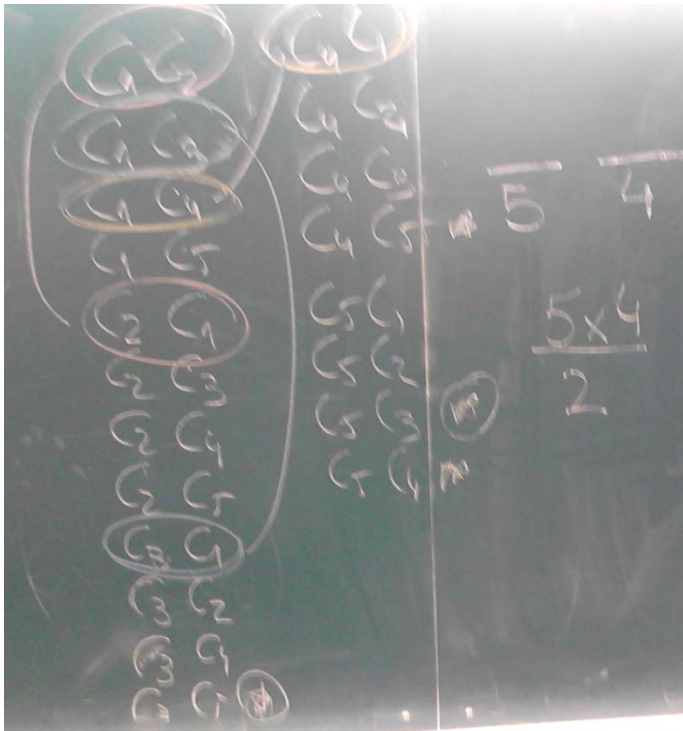 C1 C2
C1 C3
C1 C4
C1 C5
C2 C1
C2 C3
C2 C4
C2 C5
C3 C1
C3 C2
C3 C4
C3 C5
C4 C1
C4 C2
C4 C3
C4 C5
C5 C1
C5 C2
C5 C3
C5 C4
5 4
5x4
2